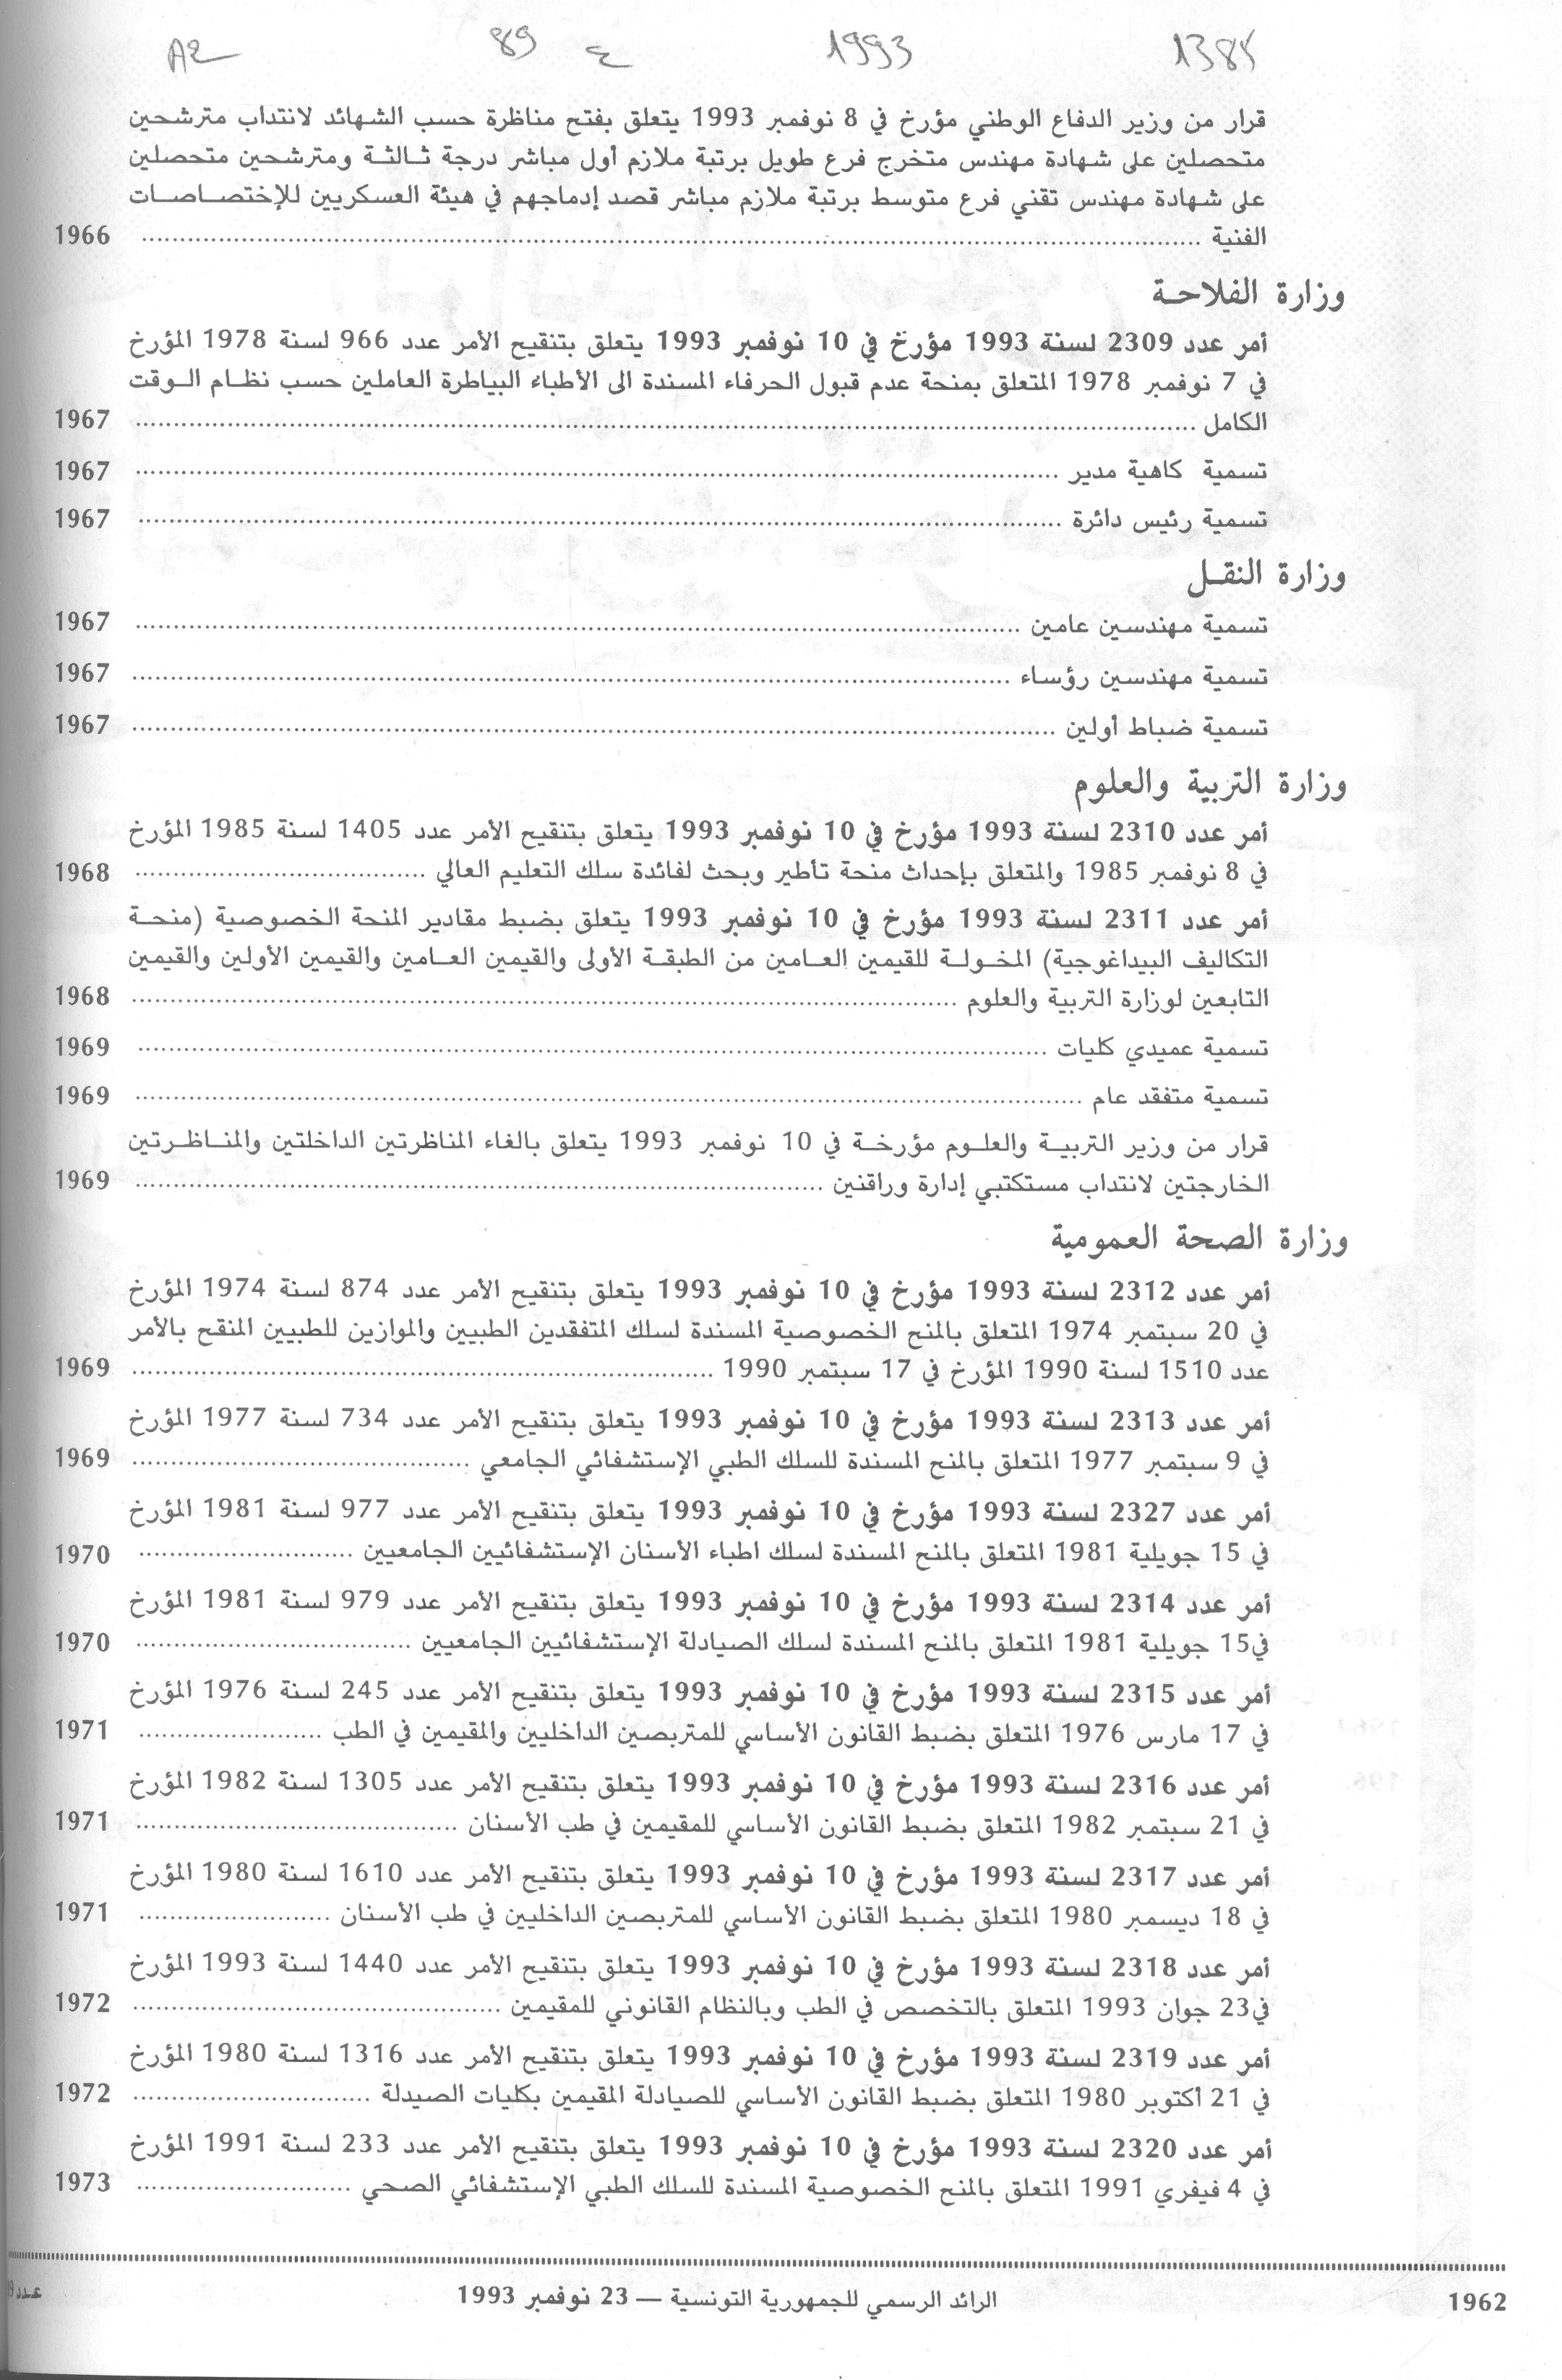 1385 1993 ع 89 A2
قرار من وزير الدفاع الوطني مؤرخ في 8 نوفمبر 1993 يتعلق بفتح مناظرة حسب الشهائد لانتداب مترشحين
متحصلين على شهادة مهندس متخرج فرع طويل برتبة ملازم أول مباشر درجة ثالثة ومترشحين متحصلين
على شهادة مهندس تقني فرع متوسط برتبة ملازم مباشر قصد إدماجهم في هيئة العسكريين للإختصاصات
الفنية ........ 1966
وزارة الفلاحة
أمر عدد 2309 لسنة 1993 مؤرخ في 10 نوفمبر 1993 يتعلق بتنقيح الأمر عدد 966 لسنة 1978 المؤرخ
في 7 نوفمبر 1978 المتعلق بمنحة عدم قبول الحرفاء المسندة الى الأطباء البياطرة العاملين حسب نظام الوقت
الكامل ........ 1967
تسمية كاهية مدير ........ 1967
تسمية رئيس دائرة ........ 1967
وزارة النقل
تسمية مهندسين عامين ........ 1967
تسمية مهندسين رؤساء ........ 1967
تسمية ضباط أولين ........ 1967
وزارة التربية والعلوم
أمر عدد 2310 لسنة 1993 مؤرخ في 10 نوفمبر 1993 يتعلق بتنقيح الأمر عدد 1405 لسنة 1985 المؤرخ
في 8 نوفمبر 1985 والمتعلق بإحداث منحة تأطير وبحث لفائدة سلك التعليم العالي ........ 1968
أمر عدد 2311 لسنة 1993 مؤرخ في 10 نوفمبر 1993 يتعلق بضبط مقادير المنحة الخصوصية (منحة
التكاليف البيداغوجية) المخولة للقيمين العامين من الطبقة الأولى والقيمين العامين والقيمين الأولين والقيمين
التابعين لوزارة التربية والعلوم ........ 1968
تسمية عميدي كليات ........ 1969
تسمية متفقد عام ........ 1969
قرار من وزير التربية والعلوم مؤرخة في 10 نوفمبر 1993 يتعلق بالغاء المناظرتين الداخلتين والمناظرتين
الخارجتين لانتداب مستكتبي إدارة وراقنين ........ 1969
وزارة الصحة العمومية
أمر عدد 2312 لسنة 1993 مؤرخ في 10 نوفمبر 1993 يتعلق بتنقيح الأمر عدد 874 لسنة 1974 المؤرخ
في 20 سبتمبر 1974 المتعلق بالمنح الخصوصية المسندة لسلك المتفقدين الطبيين والموازين للطبيين المنقح بالأمر
عدد 1510 لسنة 1990 المؤرخ في 17 سبتمبر 1990 ........ 1969
أمر عدد 2313 لسنة 1993 مؤرخ في 10 نوفمبر 1993 يتعلق بتنقيح الأمر عدد 734 لسنة 1977 المؤرخ
في 9 سبتمبر 1977 المتعلق بالمنح المسندة للسلك الطبي الإستشفائي الجامعي ........ 1969
أمر عدد 2327 لسنة 1993 مؤرخ في 10 نوفمبر 1993 يتعلق بتنقيح الأمر عدد 977 لسنة 1981 المؤرخ
في 15 جويلية 1981 المتعلق بالمنح المسندة لسلك اطباء الأسنان الإستشفائيين الجامعيين ........ 1970
أمر عدد 2314 لسنة 1993 مؤرخ في 10 نوفمبر 1993 يتعلق بتنقيح الأمر عدد 979 لسنة 1981 المؤرخ
في15 جويلية 1981 المتعلق بالمنح المسندة لسلك الصيادلة الإستشفائيين الجامعيين ........ 1970
أمر عدد 2315 لسنة 1993 مؤرخ في 10 نوفمبر 1993 يتعلق بتنقيح الأمر عدد 245 لسنة 1976 المؤرخ
في 17 مارس 1976 المتعلق بضبط القانون الأساسي للمتربصين الداخليين والمقيمين في الطب ........ 1971
أمر عدد 2316 لسنة 1993 مؤرخ في 10 نوفمبر 1993 يتعلق بتنقيح الأمر عدد 1305 لسنة 1982 المؤرخ
في 21 سبتمبر 1982 المتعلق بضبط القانون الأساسي للمقيمين في طب الأسنان ........ 1971
أمر عدد 2317 لسنة 1993 مؤرخ في 10 نوفمبر 1993 يتعلق بتنقيح الأمر عدد 1610 لسنة 1980 المؤرخ
في 18 ديسمبر 1980 المتعلق بضبط القانون الأساسي للمتربصين الداخليين في طب الأسنان ........ 1971
أمر عدد 2318 لسنة 1993 مؤرخ في 10 نوفمبر 1993 يتعلق بتنقيح الأمر عدد 1440 لسنة 1993 المؤرخ
في23 جوان 1993 المتعلق بالتخصص في الطب وبالنظام القانوني للمقيمين ........ 1972
أمر عدد 2319 لسنة 1993 مؤرخ في 10 نوفمبر 1993 يتعلق بتنقيح الأمر عدد 1316 لسنة 1980 المؤرخ
في 21 أكتوبر 1980 المتعلق بضبط القانون الأساسي للصيادلة المقيمين بكليات الصيدلة ........ 1972
أمر عدد 2320 لسنة 1993 مؤرخ في 10 نوفمبر 1993 يتعلق بتنقيح الأمر عدد 233 لسنة 1991 المؤرخ
في 4 فيفري 1991 المتعلق بالمنح الخصوصية المسندة للسلك الطبي الإستشفائي الصحي ........ 1973
1962 الرائد الرسمي للجمهورية التونسية — 23 نوفمبر 1993 عدد